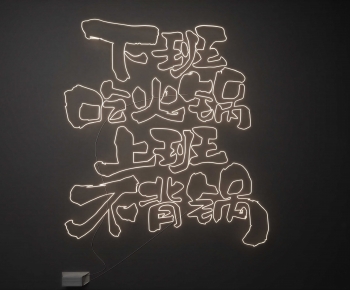 下班
吃火锅
上班
不背锅